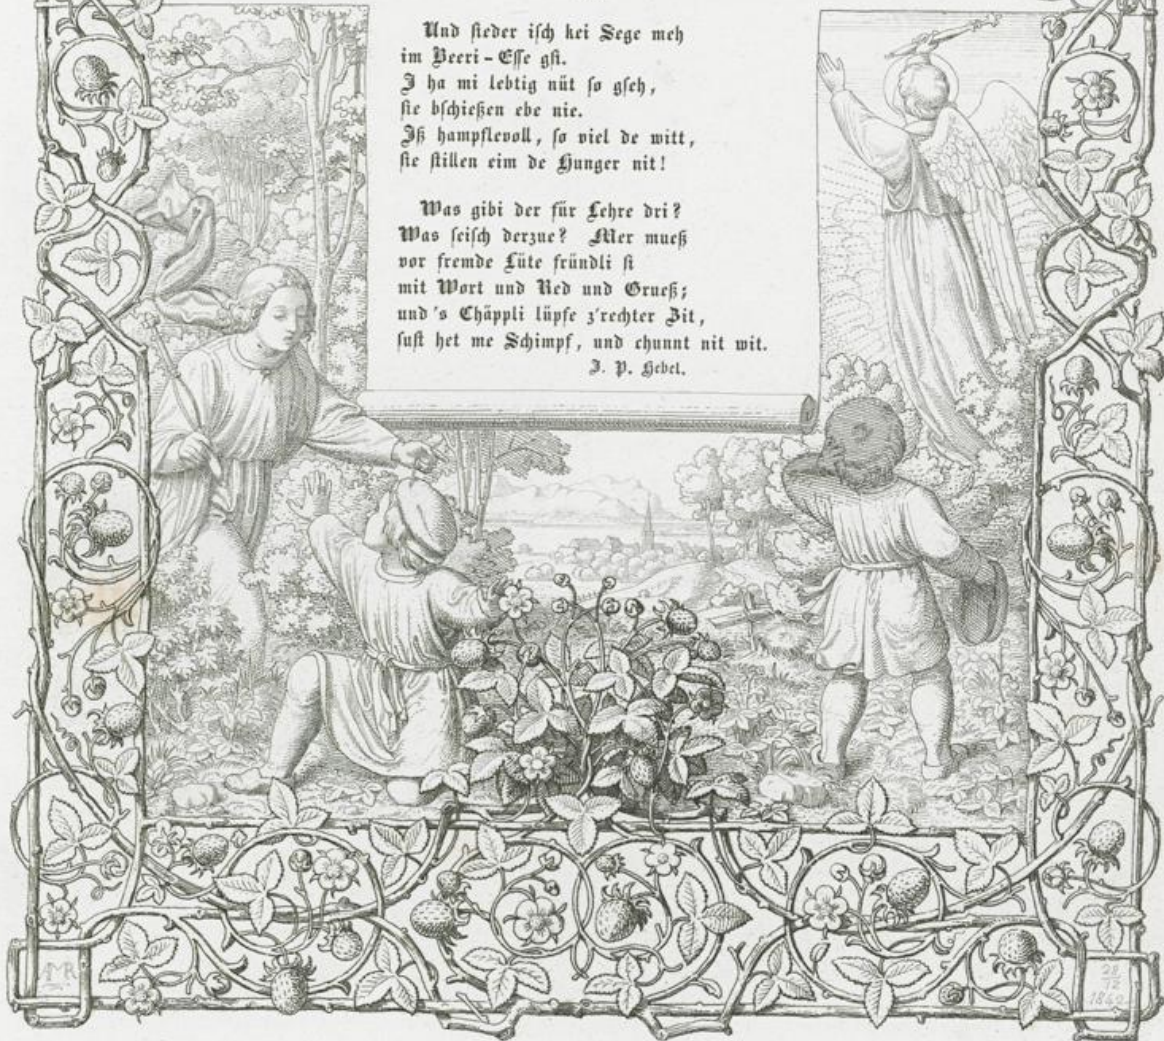 Und sieder isch kei Sege meh
im Beeri-Esse gsi.
I ha mi lebtig nüt so gseh,
sie bschießen ebe nie.
Iß hampflevoll, so viel de witt,
sie stillen eim de Hunger nit!
Was gibi der für Lehre dri?
Was seisch derzue? Mer mueß
vor fremde Lüte fründli si
mit Wort und Red und Grueß;
und's Chäppli lüpfe z'rechter Zit,
sust het me Schimpf, und chunnt nit wit.
J. P. Hebel.
AMR
28
12
1842